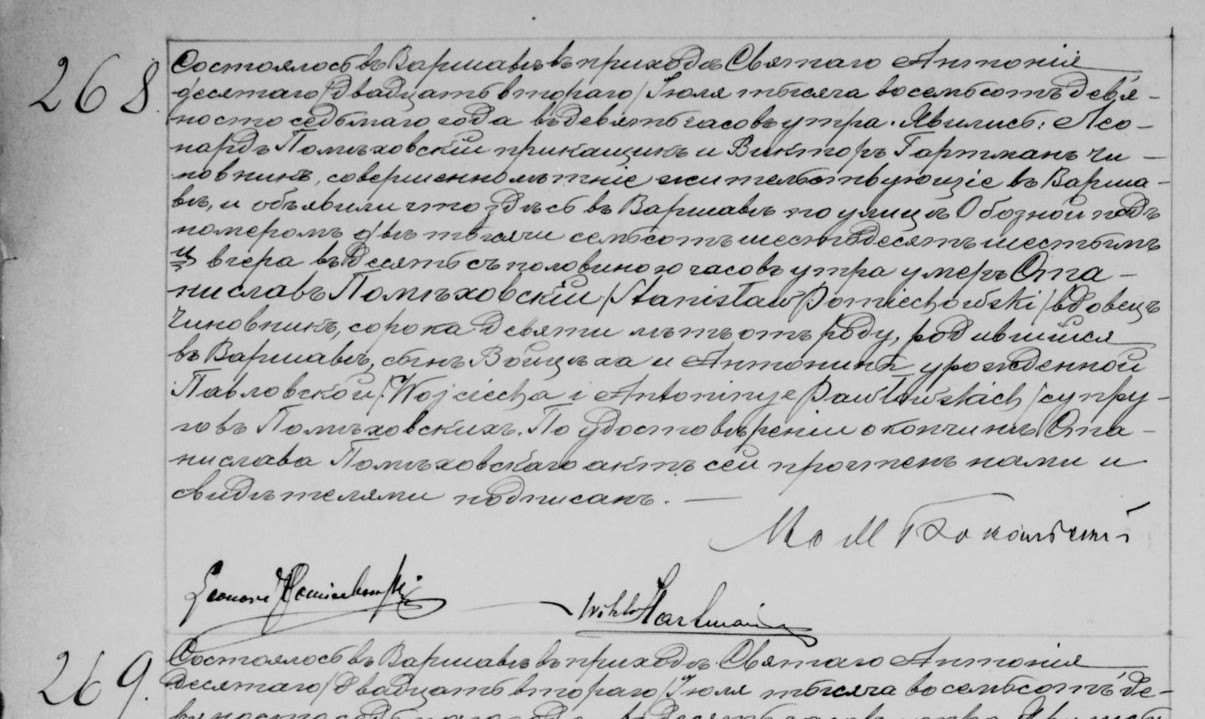 268.
Состоялось въ Варшавѣ въ приходѣ Святаго Антонія
десятаго /двадцать втораго/ Іюля тысяча восемьсотъ девя-
носто седьмаго года въ девять часовъ утра. Явились: Лео-
нардъ Помѣховскій прикащикъ и Викторъ Гартманъ чи-
новникъ, совершеннолѣтніе жительствующіе въ Варша-
вѣ, и объявили что здѣсь въ Варшавѣ по улицѣ Обозной подъ
номеромъ двѣ тысячи семьсотъ шестьдесятъ шестымъ
ц вчера въ десять съ половиною часовъ утра умеръ Ста-
ниславъ Помѣховскій /Stanisław Pomiechowski/ вдовецъ
чиновникъ, сорока девяти лѣтъ отъ роду, родившійся
въ Варшавѣ, сынъ Войцѣха и Антонины урожденной
Павловской /Wojciecha i Antoniny z Pawłowskich/ супру-
говъ Помѣховскихъ. По удостовѣреніи о кончинѣ Ста-
нислава Помѣховскаго актъ сей прочтенъ нами и
свидѣтелями подписанъ. —
Leonard Pomiechowski
Wiktor Hartman
269.
Состоялось въ Варшавѣ въ приходѣ Святаго Антонія
десятаго /двадцать втораго/ Іюля тысяча восемьсотъ де-